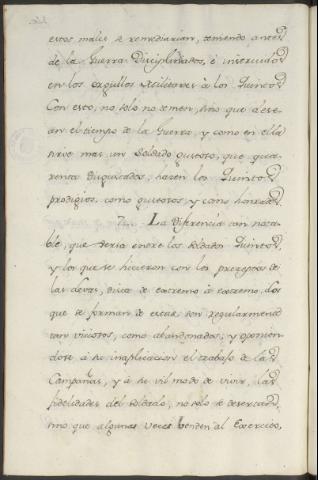 estos males se remediarian, teniendo antes
de la Guerra Disciplinados, è instruidos
en los orgullos Militares à los Quintos
Con esto, no solo no temen, sino que dese-
an el tiempo de la Guerra, y como en ella
sirve mas un Soldado gustoso, que qua-
renta disgustados, hacen los Quintos
prodigios, como gustosos, y como honrados.
7. La Diferencia tan nota-
ble, que seria entre los Soldados Quintos
y los que se hicieron con los preceptos de
las levas, dista de extremo à extremo. Los
que se forman de estas son regularmente
tan viciosos, como abandonados; y oponien-
dose à su inaplicacion el trabajo de las
Campañas, y à su vil modo de vivir, las
fidelidades del soldado, no solo se desertan,
sino que algunas veces venden al Exercito,